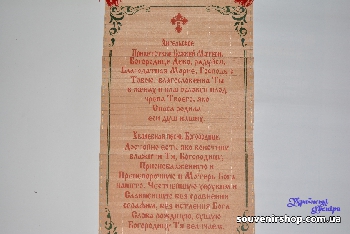 Ангельское
Приветствие Божией Матери.
Богородице Дево, радуйся,
Благодатная Марие, Господь с
Тобою, благословенна Ты
в женах и благословен плод
чрева Твоего, яко
Спаса родила
еси душ наших.
Хвалебная песнь Богородице.
Достойно есть яко воистину
блажити Тя, Богородицу,
Присноблаженную и
Пренепорочную и Матерь Бога
нашего. Честнейшую херувим и
Славнейшую без сравнения
серафим, без истления Бога
Слова рождшую, сущую
Богородицу Тя величаем.
souvenirshop.com.ua